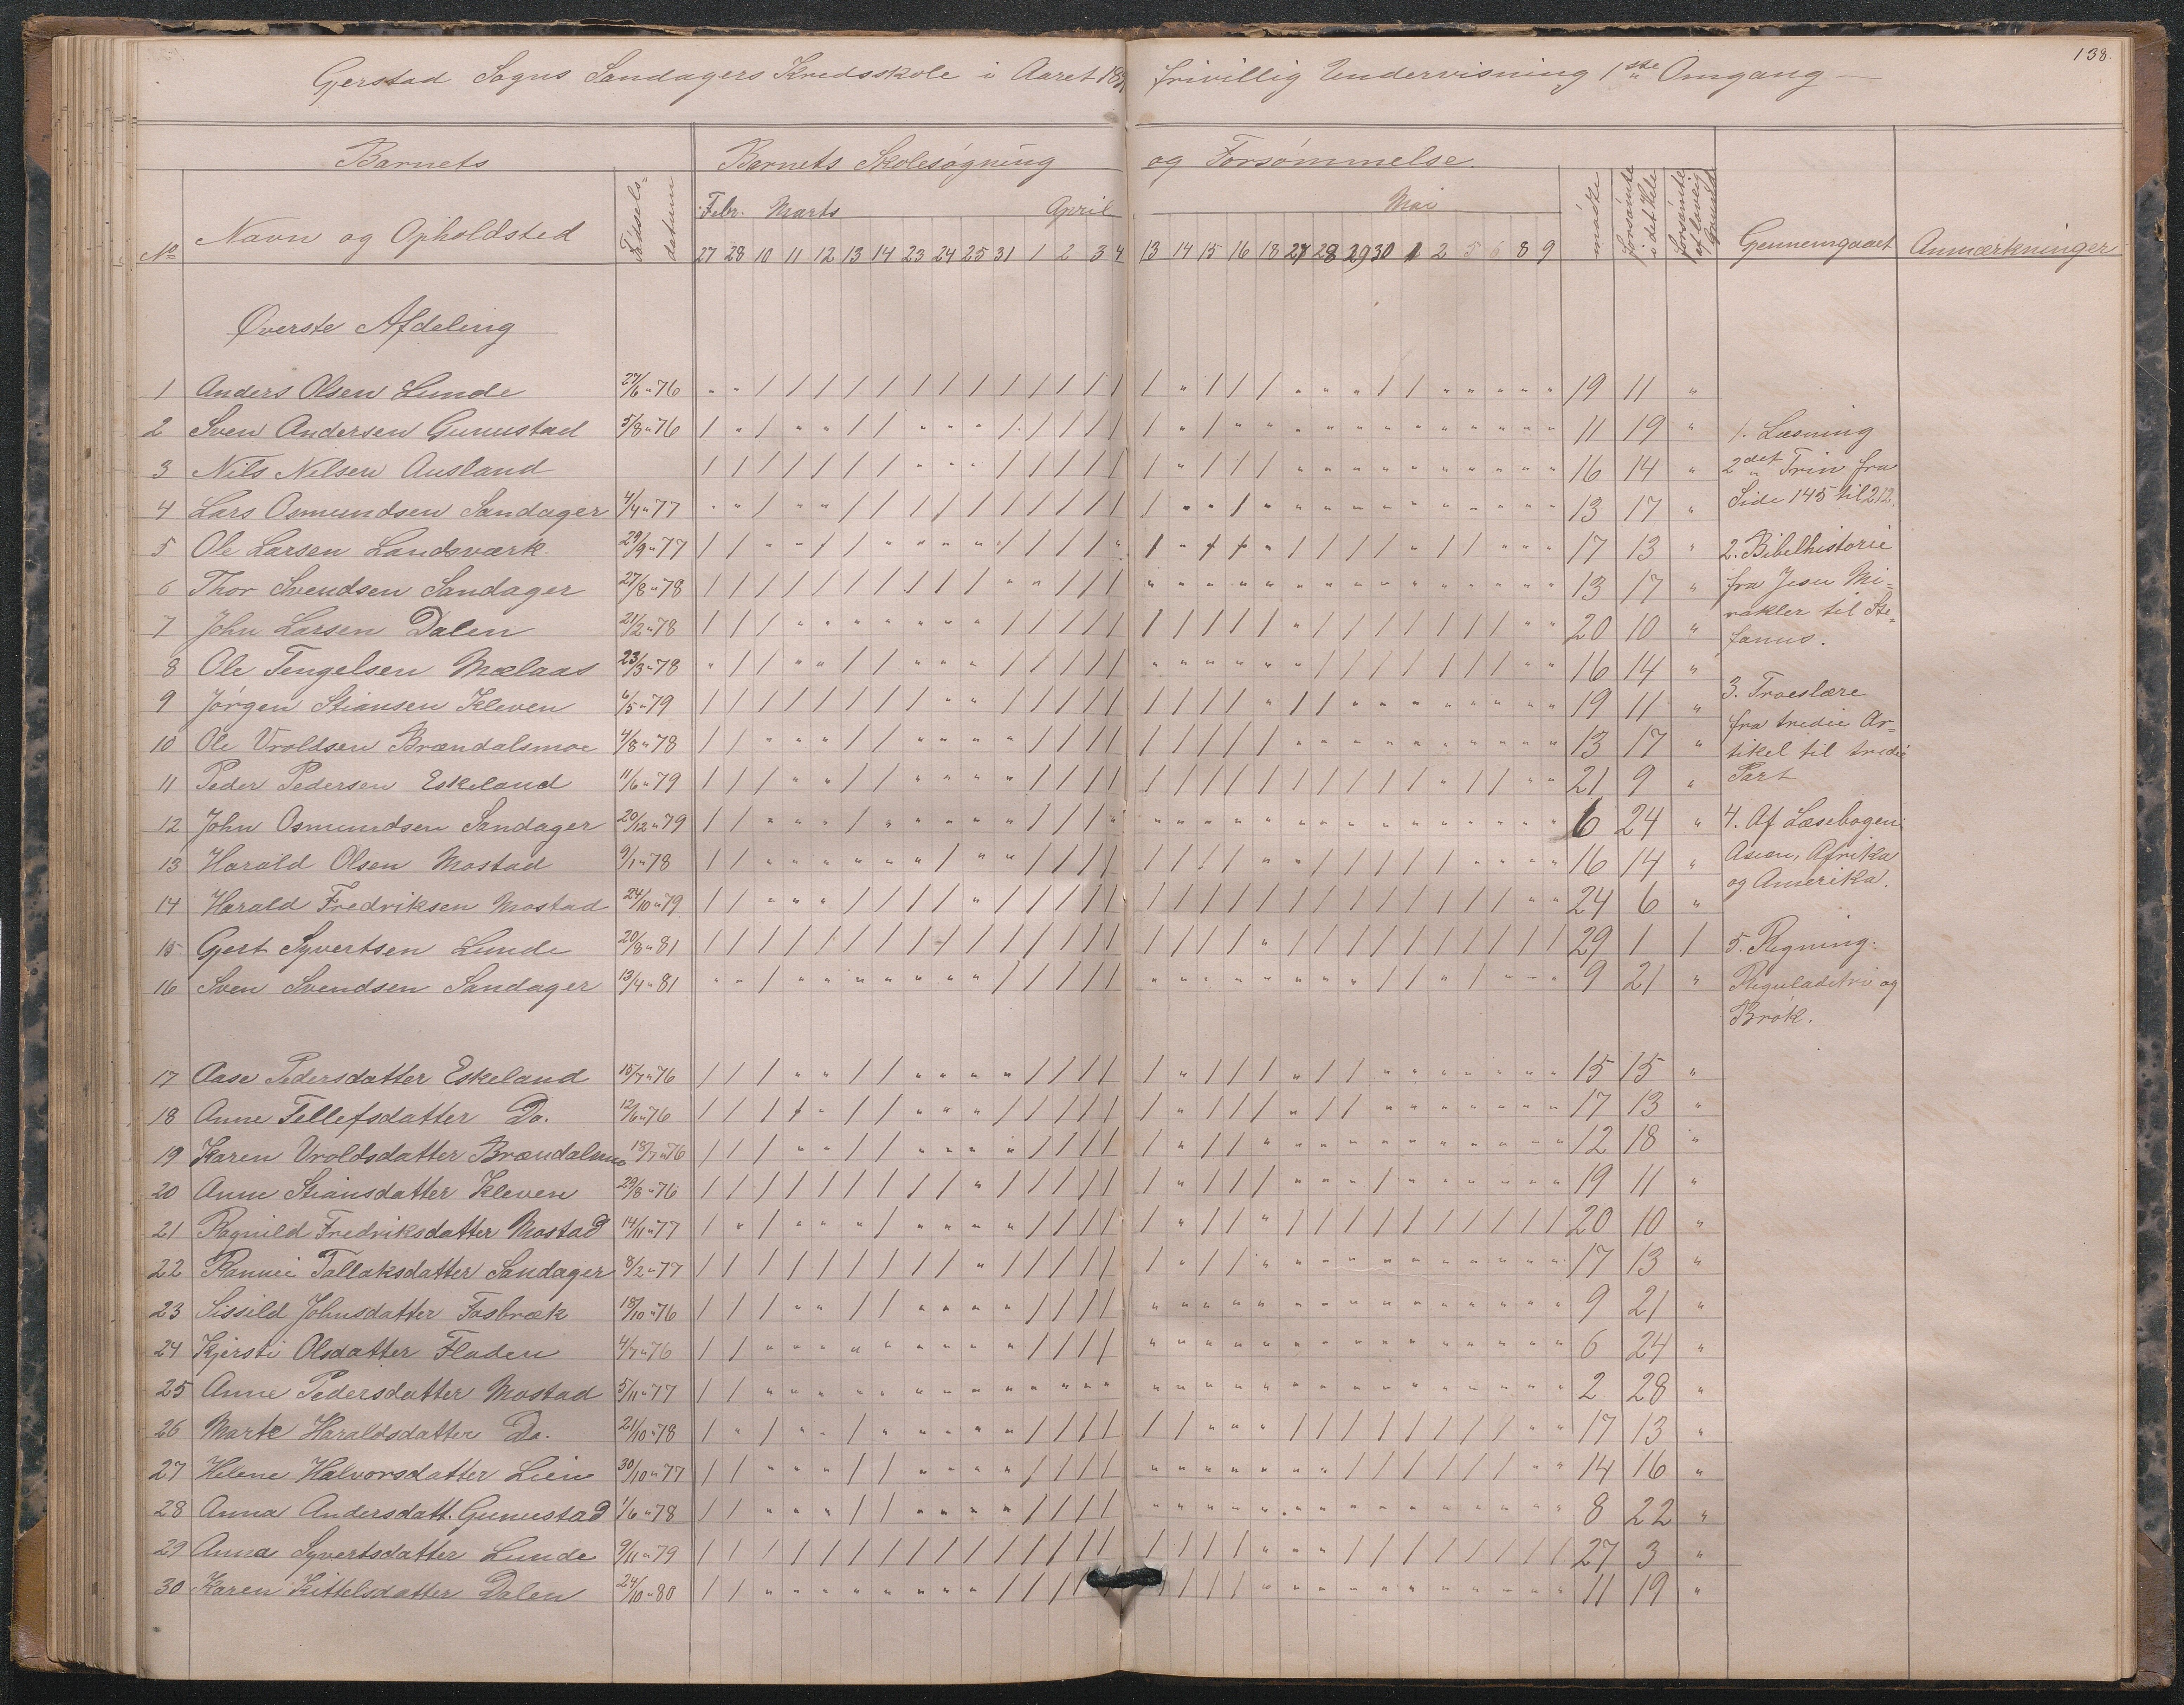 138.
Gjerstad Sogns Sandagers Kredsskole i Aaret 189 frivillig Undervisning 1ste Omgang
Barnets Barnets Skolesøgning og Forsømmelse
No Navn og Opholdsted Fødsels=datum Febr. Marts April Mai mødte forsømte i det Hele forsømte af lovlig Grund Gennemgaaet Anmærkninger
27 28 10 11 12 13 14 23 24 25 31 1 2 3 4 13 14 15 16 18 27 28 29 30 1 2 5 6 8 9
Øverste Afdeling
1 Anders Olsen Lunde 27/6 " 76 19 11 "
2 Sven Andersen Gunustad 5/8 " 76 11 19 "
3 Nils Nilsen Ausland 16 14 "
4 Lars Osmundsen Sandager 4/4 " 77 13 17 "
5 Ole Larsen Landsværk 29/9 " 77 17 13 "
6 Thor Svendsen Sandager 27/8 " 78 13 17 "
7 John Larsen Dalen 21/2 " 78 20 10 "
8 Ole Tengelsen Mælaas 23/3 " 78 16 14 "
9 Jørgen Stiansen Kleven 6/5 " 79 19 11 "
10 Ole Vroldsen Brændalsmoe 4/8 " 78 13 17 "
11 Peder Pedersen Eskeland 11/6 " 79 21 9 "
12 John Osmundsen Sandager 20/12 " 79 6 24 "
13 Harald Olsen Mostad 9/1 " 78 16 14 "
14 Harald Fredriksen Mostad 24/10 " 79 24 6 "
15 Gjert Syvertsen Lunde 20/8 " 81 29 1 1
16 Sven Svendsen Sandager 13/4 " 81 9 21 "
17 Aase Pedersdatter Eskeland 15/7 " 76 15 15 "
18 Anne Tellefsdatter Do. 12/6 " 76 17 13 "
19 Karen Vroldsdatter Brændalsmo 18/7 " 76 12 18 "
20 Anne Stiansdatter Kleven 29/8 " 76 19 11 "
21 Ragnild Fredriksdatter Mostad 14/11 " 77 20 10 "
22 Rannei Tallaksdatter Sandager 8/2 " 77 17 13 "
23 Sissild Johnsdatter Fosbræk 18/10 " 76 9 21 "
24 Kjersti Olsdatter Fladen 4/7 " 76 6 24 "
25 Anne Pedersdatter Mostad 5/11 " 77 2 28 "
26 Marte Haraldsdatter Do. 21/10 " 78 17 13 "
27 Helene Halvorsdatter Lien 30/10 " 77 14 16 "
28 Anna Andersdatt. Gunustad 1/6 " 78 8 22 "
29 Anna Syvertsdatter Lunde 9/11 " 79 27 3 "
30 Karen Kittelsdatter Dalen 24/10 " 80 11 19 "
1. Læsning
2det Trin fra
Side 145 til 212.
2. Bibelhistorie
fra Jesu Mi=
rakler til Ste=
fanus.
3. Troeslære
fra tredie Ar=
tikel til tredie
Part
4. Af Læsebogen:
Asien, Afrika
og Amerika.
5. Regning:
Reguladetri og
Brøk.